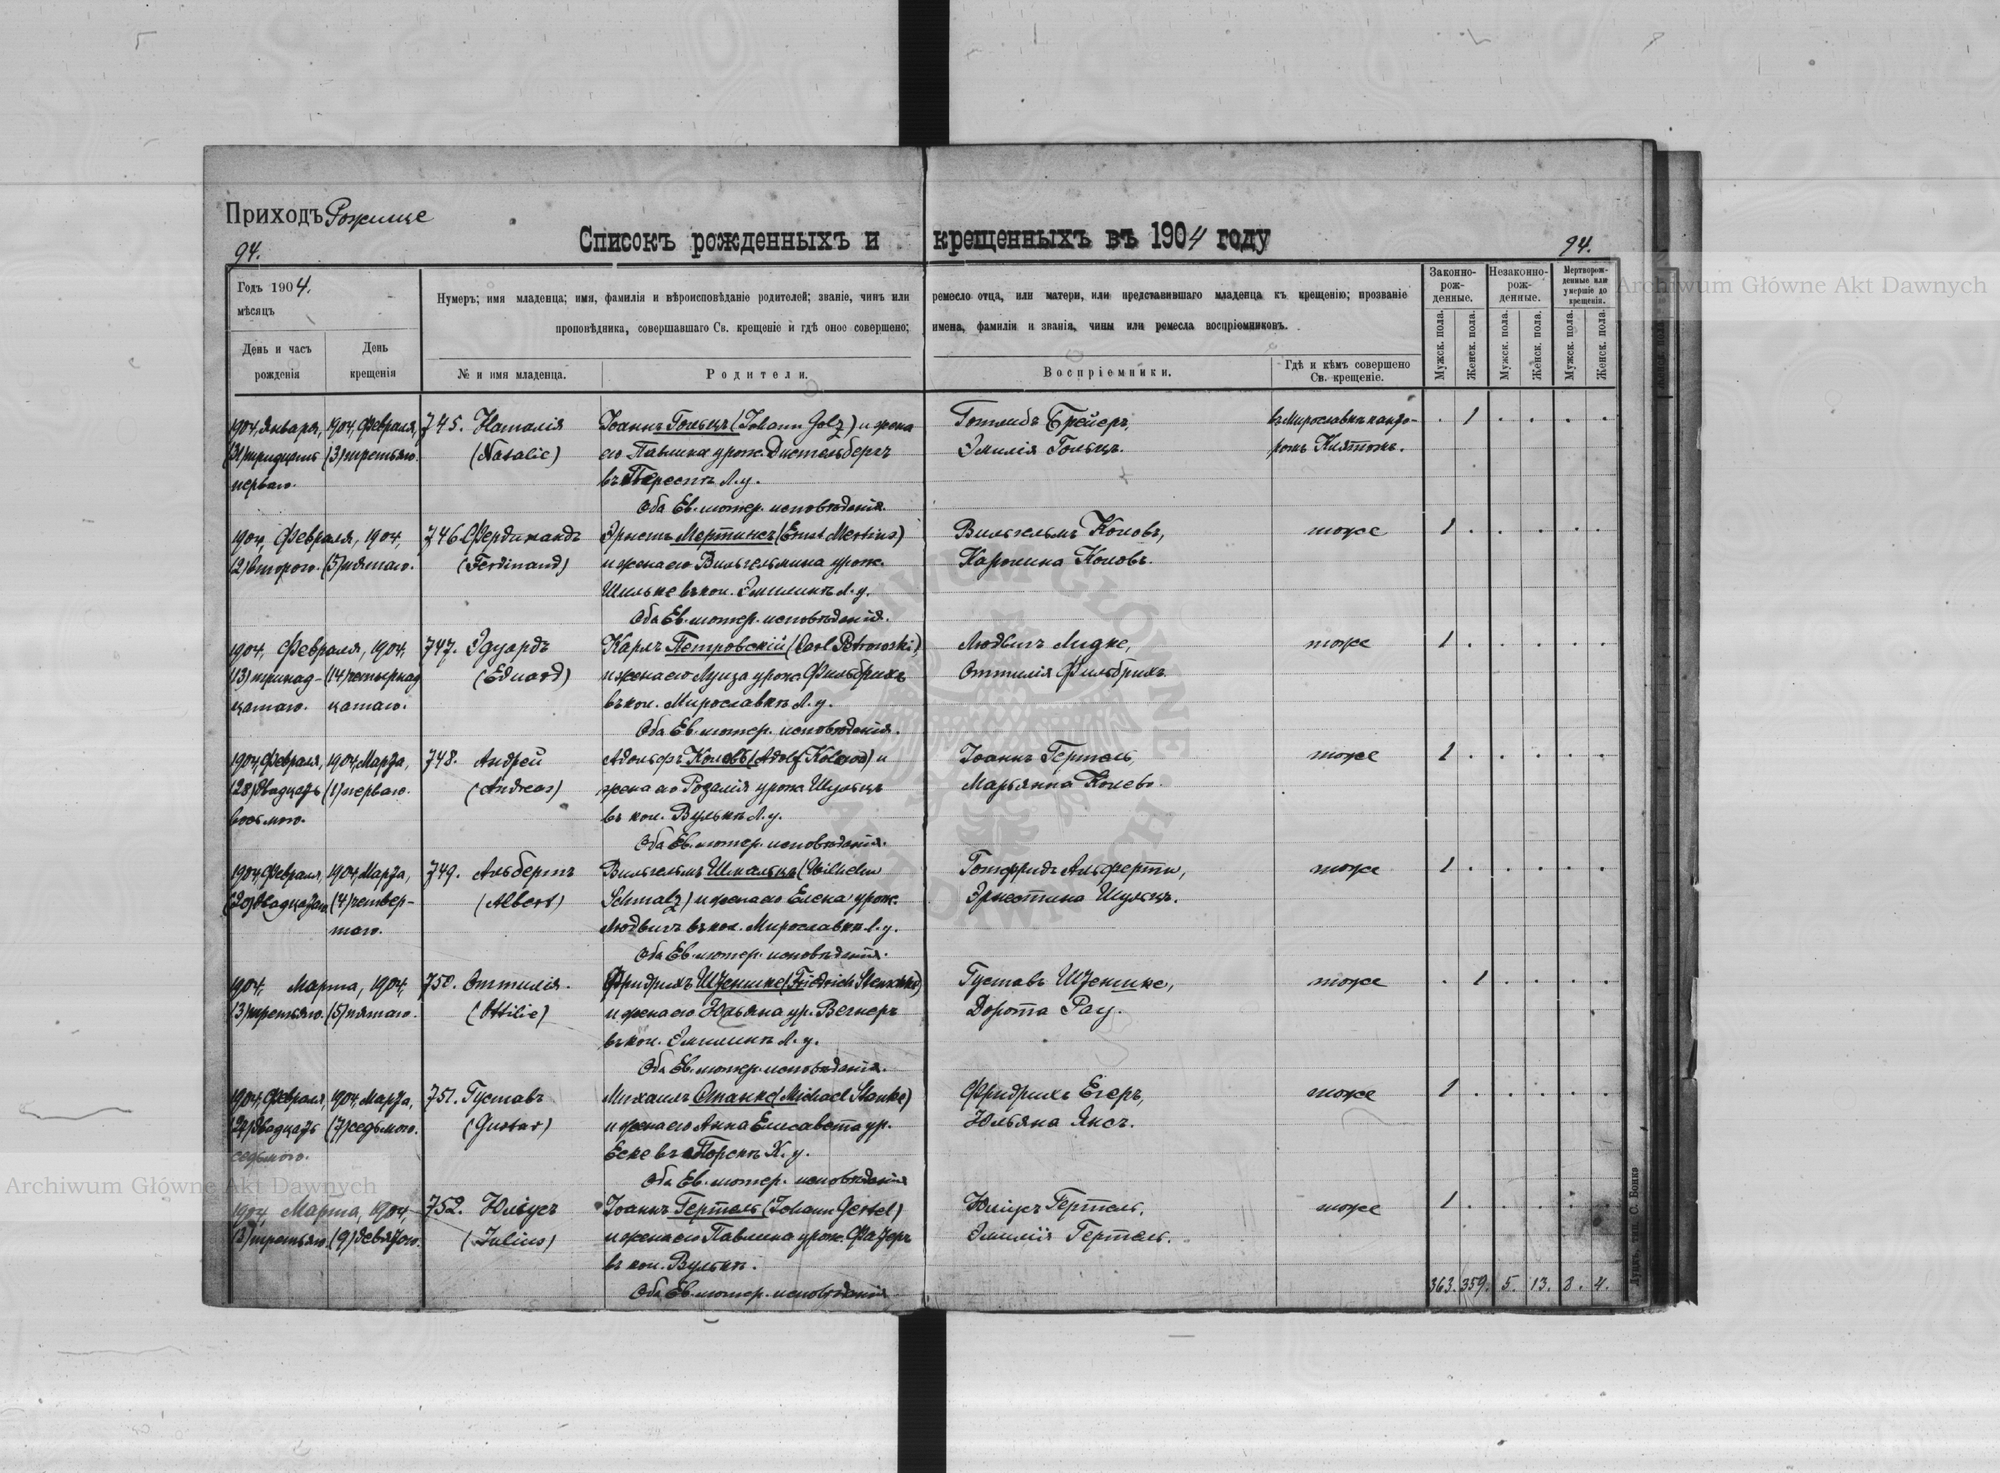 Приходъ Рожище
94.
Списокъ рожденныхъ и крещенныхъ въ 1904 году
94.
Годъ 1904.
мѣсяцъ
День и часъ рожденія
День крещенія
Нумеръ; имя младенца; имя, фамилія и вѣроисповѣданіе родителей; званіе, чинъ или ремесло отца, или матери, или представившаго младенца къ крещенію; прозваніе
проповѣдника, совершавшаго Св. крещеніе и гдѣ оное совершено; имена, фамиліи и званія, чины или ремесла воспріемниковъ.
№ и имя младенца.
Родители.
Воспріемники.
Гдѣ и кѣмъ совершено Св. крещеніе.
Законно-рож-денные.
Незаконно-рож-денные.
Мертворож-денные или умершіе до крещенія.
Мужск. пола.
Женск. пола.
Мужск. пола.
Женск. пола.
Мужск. пола.
Женск. пола.
1904, Января, 1904, Февраля, 745. Наталія Іоаннъ Гольцъ (Johann Golz) и жена Готлибъ Брейеръ, въ Мирославкѣ канто- . 1 . . . .
(31) тридцать (3) третьяго. (Natalie) его Павлина урож. Дистельбергъ Эмилія Гольцъ. ромъ Княтомъ.
перваго. въ Переспѣ Л.у.
Оба Ев. лютер. исповѣданія.
1904, Февраля, 1904, 746. Фердинандъ Эрнстъ Мертинсъ (Ernst Mertins) Вильгельмъ Коловъ, тоже 1 . . . . .
(2) второго. (5) пятаго. (Ferdinand) и жена его Вильгельмина урож. Каролина Коловъ.
Шильке въ кол. Эмилинѣ Л.у.
Оба Ев. лютер. исповѣданія.
1904, Февраля, 1904, 747. Эдуардъ Карлъ Петровскій (Carl Petrowski) Людвигъ Лидке, тоже 1 . . . . .
(13) тринад- (14) четырнад (Eduard) и жена его Луиза урож. Фильбрихъ Оттилія Фильбрихъ.
цатаго. цатаго. въ кол. Мирославкѣ Л.у.
Оба Ев. лютер. исповѣданія.
1904, Февраля, 1904, Марта, 748. Андрей Адольфъ Коловъ (Adolf Kolnow) и Іоаннъ Гертель, тоже 1 . . . . .
(28) двадцать (1) перваго. (Andreas) жена его Розалія урож. Шульцъ Марьянна Колевъ.
восьмого. въ кол. Вулькѣ Л.у.
Оба Ев. лютер. исповѣданія.
1904, Февраля, 1904, Марта, 749. Альбертъ Вильгельмъ Шмальцъ (Wilhelm Готфридъ Альферти, тоже 1 . . . . .
(20) двадцатаго (4) четвер- (Albert) Schmalz) и жена его Елена урож. Эрнестина Шульцъ.
таго. Людвигъ въ кол. Мирославкѣ Л.у.
Оба Ев. лютер. исповѣданія.
1904, Марта, 1904, 750. Оттилія. Фридрихъ Штенцке (Friedrich Густавъ Штенцке, тоже . 1 . . . .
(3) третьяго. (5) пятаго. (Ottilie) и жена его Юльяна ур. Вегнеръ Дорота Рау.
въ кол. Эмилинѣ Л.у.
Оба Ев. лютер. исповѣданія.
1904, Февраля, 1904, Марта, 751. Густавъ Михаилъ Станке (Michael Stanke) Фридрихъ Егеръ, тоже 1 . . . . .
(27) двадцать (7) седьмого. (Gustav) и жена его Анна Елисавета ур. Юльяна Янсъ.
седьмого. Еске въ Торскѣ К.у.
Оба Ев. лютер. исповѣданія
1904, Марта, 1904, 752. Юліусъ Іоаннъ Гертель (Johann Gertel) Юліусъ Гертель, тоже 1 . . . . .
(3) третьяго. (9) девятого. (Julius) и жена его Павлина урож. Фацеръ Эмилія Гертель.
въ кол. Вулькѣ.
Оба Ев. лютер. исповѣданія
363. 359. 5. 13. 8. 4.
Archiwum Główne Akt Dawnych
Archiwum Główne Akt Dawnych